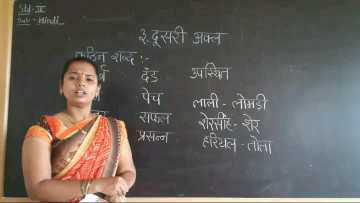 Std - IX
Sub - Hindi
३. दूसरी अक्ल
कठिन शब्द :-
र्थ दंड उपस्थित
पेच लाली - लोमडी
सफल शेरसींह - शेर
प्रसन्न हरियल - तोता